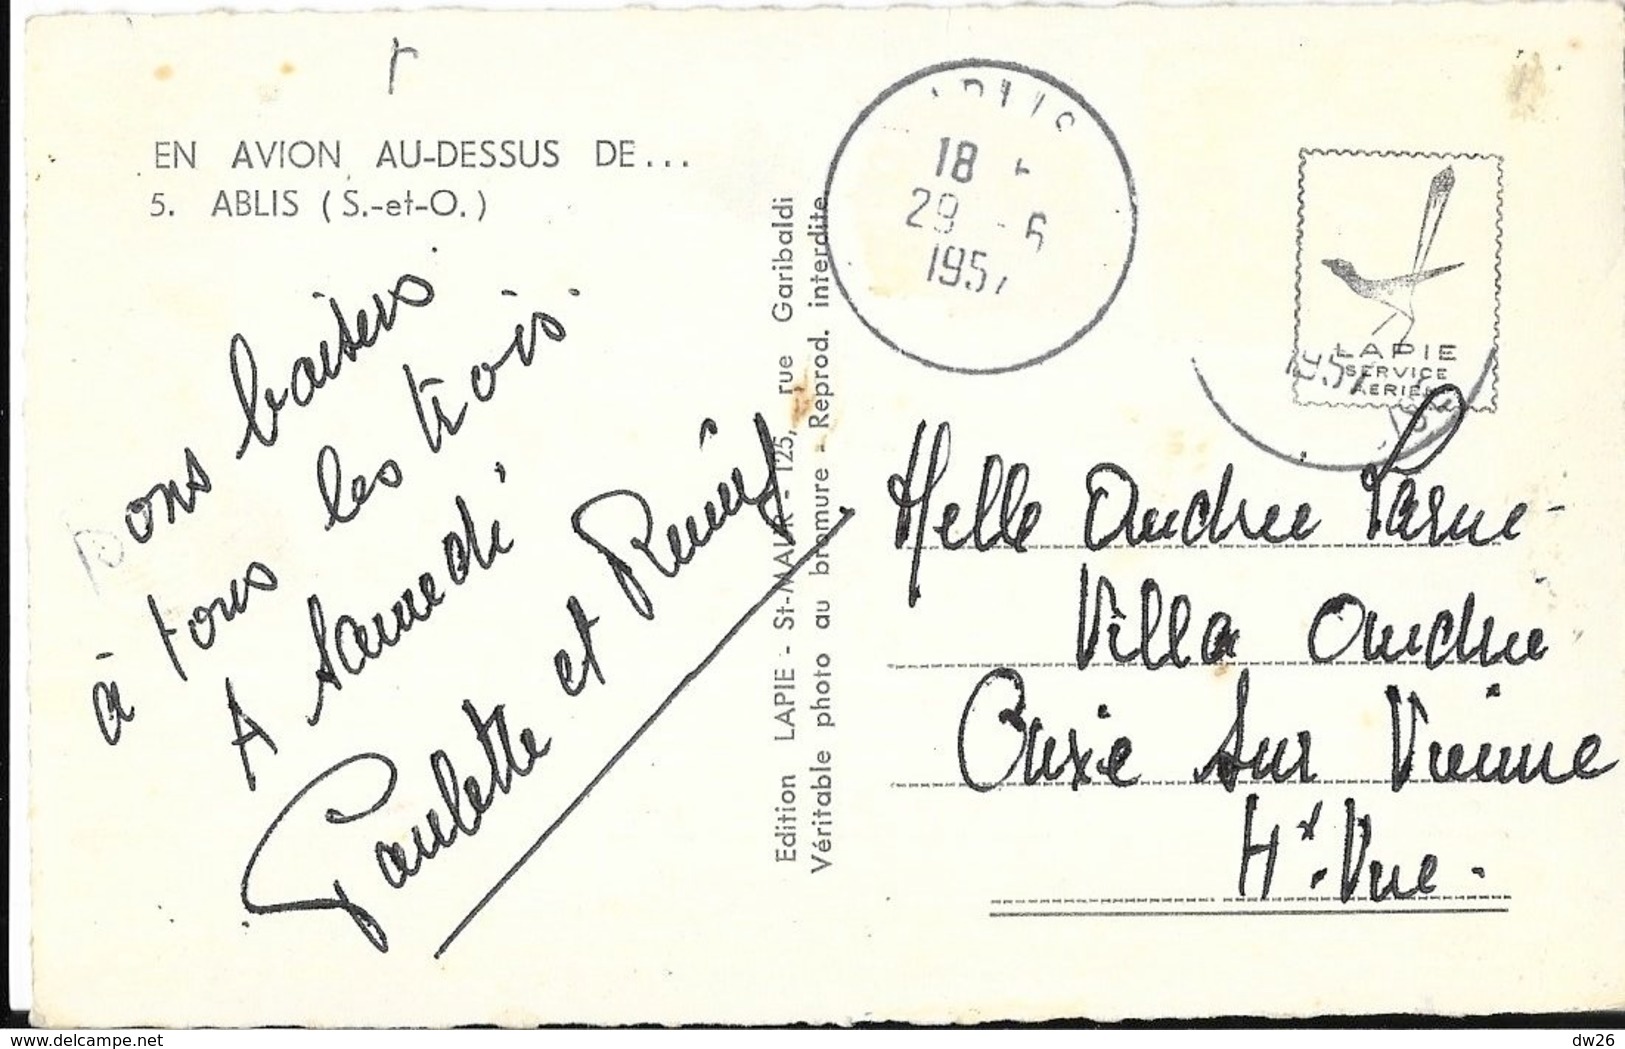 EN AVION AU-DESSUS DE...
5. ABLIS (S.-et-O.)
Bons baisers
à tous les trois.
A Samedi
Paulette et
Edition LAPIE - St-MAUR - 125, rue Garibaldi
Véritable photo au bromure - Reprod. interdite
18
29 - 6
195
LAPIE
SERVICE
AERIEN
Melle Andrée
Villa Andrée
Aixe Sur Vienne
Hte Vne.
www.delcampe.net
dw26